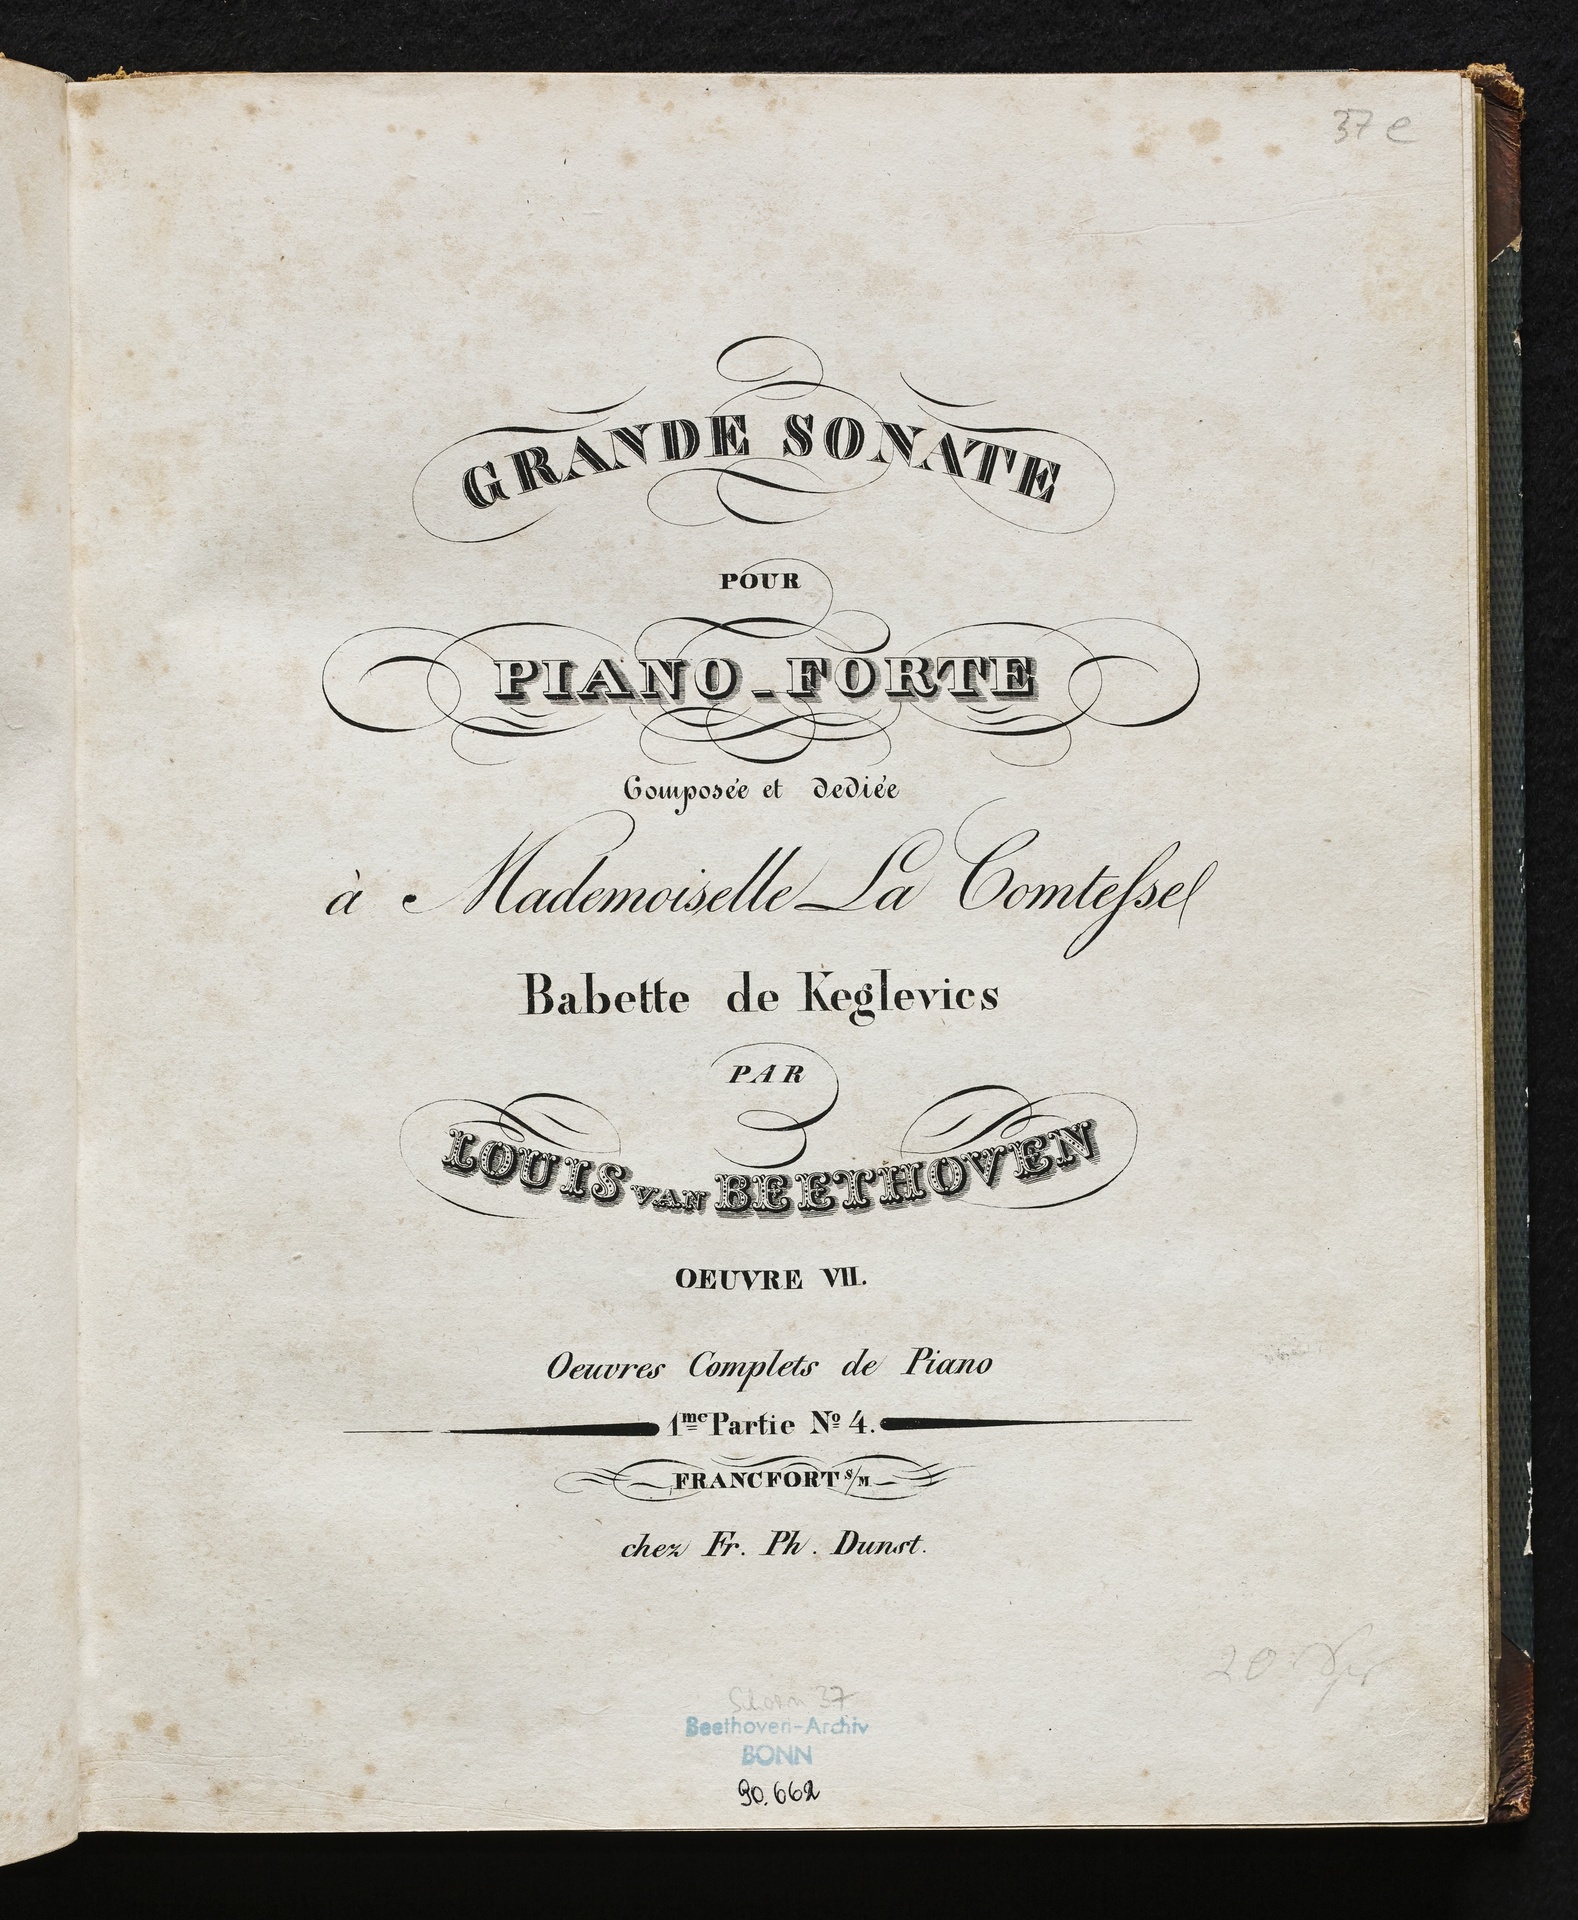 37 e
GRANDE SONATE
POUR
PIANO-FORTE
Composée et dediée
à Mademoiselle La Comteſse
Babette de Keglevics
PAR
LOUIS VAN BEETHOVEN
OEUVRE VII.
Oeuvres Complets de Piano
1me Partie No 4.
FRANCFORT s/M
chez Fr. Ph. Dunst.
20
Schorn 37
Beethoven-Archiv
BONN
90.662